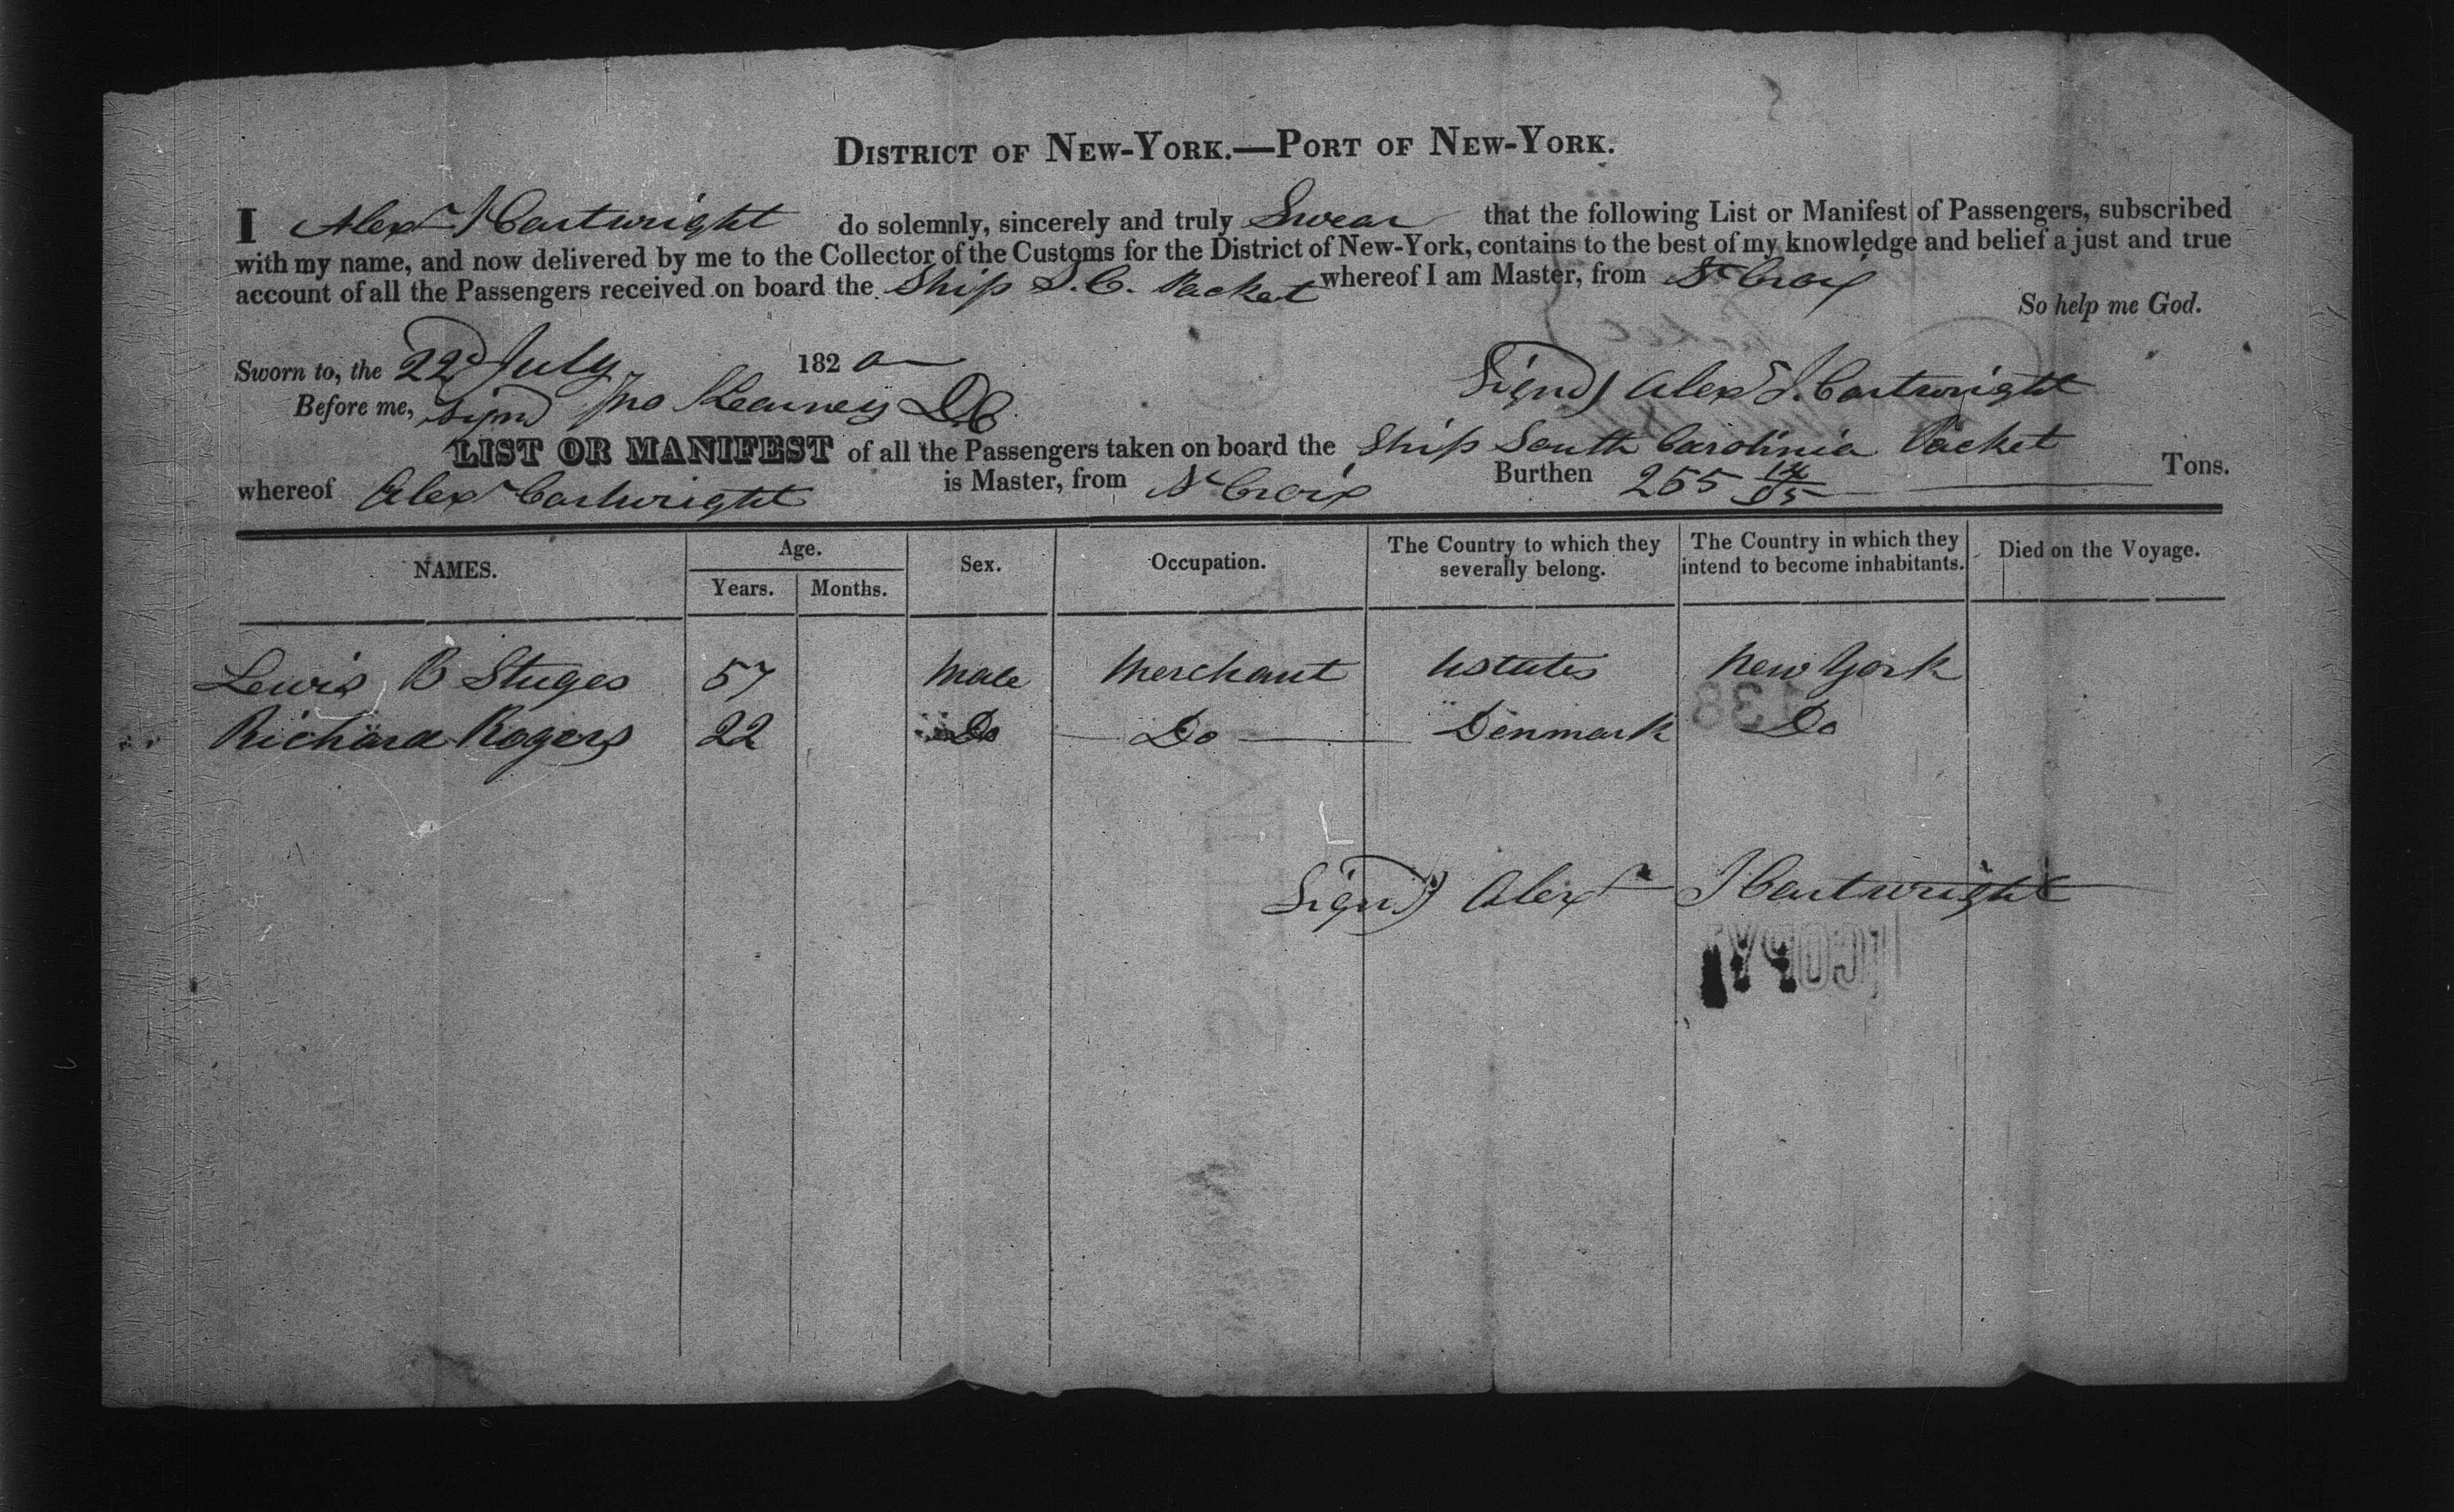 DISTRICT OF NEW-YORK.—PORT OF NEW-YORK.
I Alexr J Cartwright do solemnly, sincerely and truly Swear that the following List or Manifest of Passengers, subscribed
with my name, and now delivered by me to the Collector of the Customs for the District of New-York, contains to the best of my knowledge and belief a just and true
account of all the Passengers received on board the Ship S.C. Packet whereof I am Master, from St Croix
So help me God.
Sworn to, the 22d July 1820
Signd) Alexr J. Cartwright
Before me, Signd Jno Kearney DC
LIST OR MANIFEST of all the Passengers taken on board the Ship South Carolinia Packet
whereof Alexr Cartwright is Master, from St Croix Burthen 255 14/95 Tons.
NAMES. Age. Years. Months. Sex. Occupation. The Country to which they severally belong. The Country in which they intend to become inhabitants. Died on the Voyage.
Lewis B Stuges 57 Male Merchant Ustates New York
Richard Rogers 22 Do Do Denmark Do
138
Signd) Alexr J Cartwright
COPY